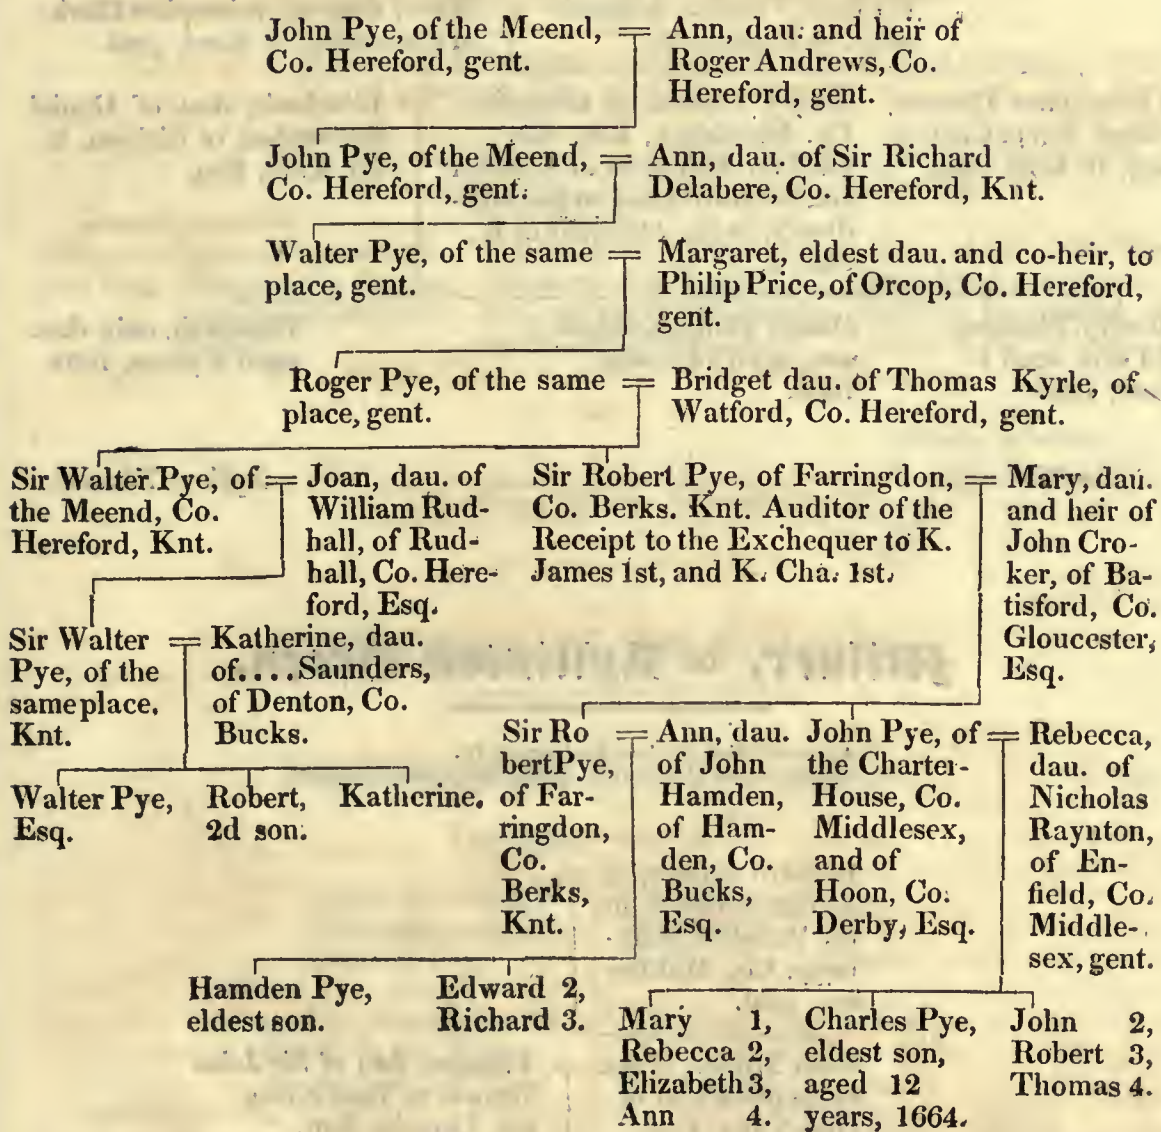 John Pye, of the Meend,
Co. Hereford, gent.
=
Ann, dau. and heir of
Roger Andrews, Co.
Hereford, gent.
John Pye, of the Meend,
Co. Hereford, gent.
=
Ann, dau. of Sir Richard
Delabere, Co. Hereford, Knt.
Walter Pye, of the same
place, gent.
=
Margaret, eldest dau. and co-heir, to
Philip Price, of Orcop, Co. Hereford,
gent.
Roger Pye, of the same
place, gent.
=
Bridget dau. of Thomas Kyrle, of
Watford, Co. Hereford, gent.
Sir Walter Pye, of
the Meend, Co.
Hereford, Knt.
=
Joan, dau. of
William Rud-
hall, of Rud-
hall, Co. Here-
ford, Esq.
Sir Robert Pye, of Farringdon,
Co. Berks. Knt. Auditor of the
Receipt to the Exchequer to K.
James 1st, and K. Cha. 1st.
=
Mary, dau.
and heir of
John Cro-
ker, of Ba-
tisford, Co.
Gloucester,
Esq.
Sir Walter
Pye, of the
same place,
Knt.
=
Katherine, dau.
of....Saunders,
of Denton, Co.
Bucks.
Sir Ro
bert Pye,
of Far-
ringdon,
Co.
Berks,
Knt.
=
Ann, dau.
of John
Hamden,
of Ham-
den, Co.
Bucks,
Esq.
John Pye, of
the Charter-
House, Co.
Middlesex,
and of
Hoon, Co.
Derby, Esq.
=
Rebecca,
dau. of
Nicholas
Raynton,
of En-
field, Co.
Middle-
sex, gent.
Walter Pye,
Esq.
Robert,
2d son.
Katherine.
Hamden Pye,
eldest son.
Edward 2,
Richard 3.
Mary 1,
Rebecca 2,
Elizabeth 3,
Ann 4.
Charles Pye,
eldest son,
aged 12
years, 1664.
John 2,
Robert 3,
Thomas 4.